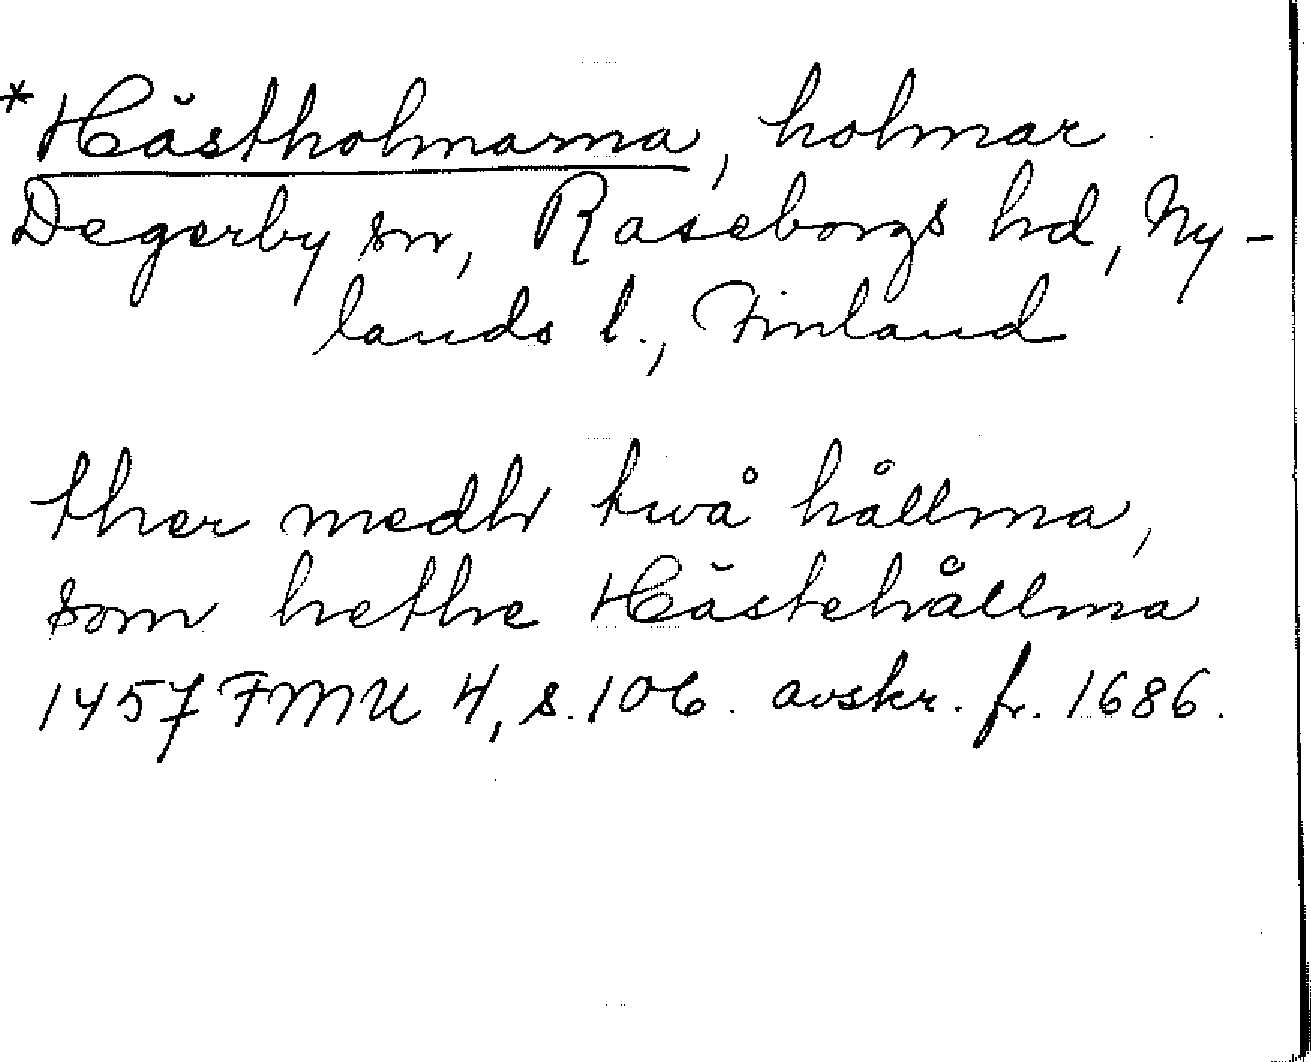 *Hästholmarna, holmar
Degerby sn, Raseborgs hd, Ny-
lands l., Finland
ther medh twå hållma,
som hethe Hästehållma
1457 FMU 4, s. 106. avskr. fr. 1686.